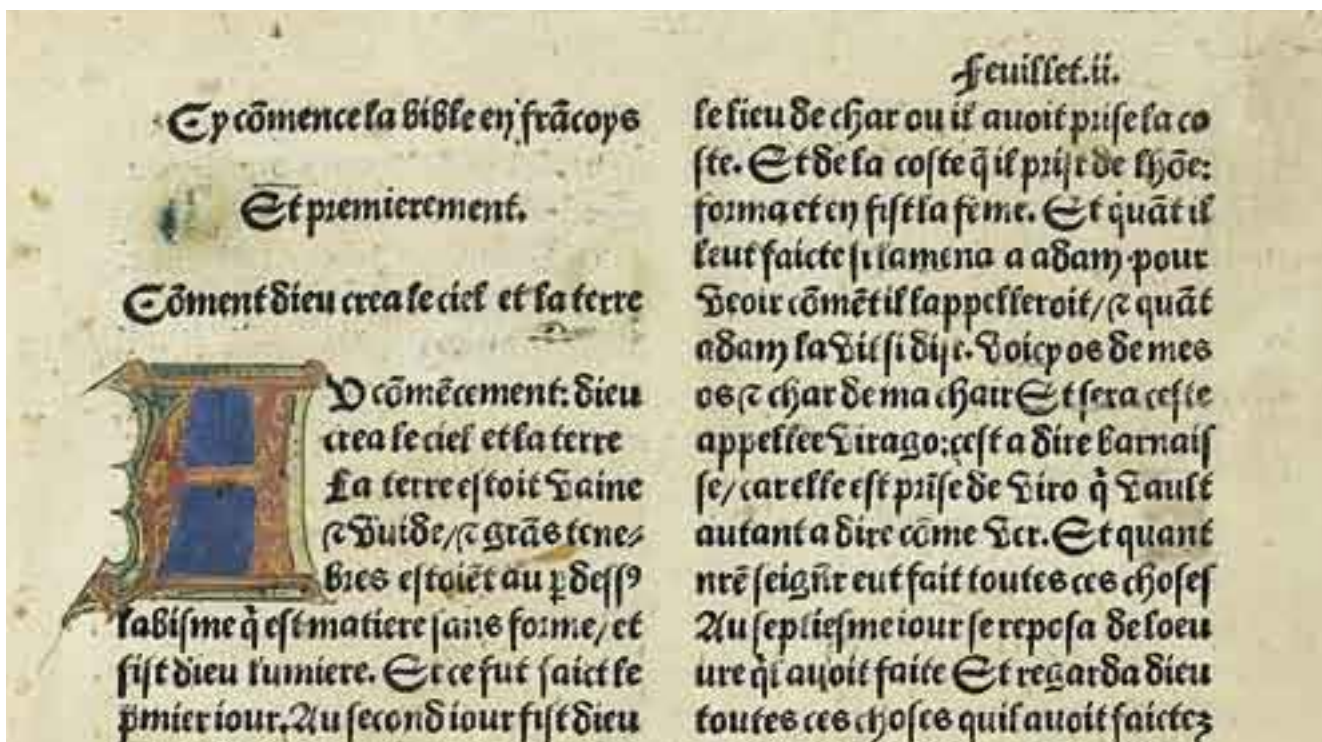 Feuillet.ii.
Cy cõmence la bible en frãcoys
Et premierement.
Cõment dieu crea le ciel et la terre
AV cõmẽcement: dieu
crea le ciel et la terre
La terre estoit vaine
⁊ vuide/⁊ grãs tene⸗
bres estoiẽt au ꝑ dessꝰ
labisme q̃ est matiere sans forme/et
fist dieu lumiere. Et ce fut faict le
p̃mier iour. Au second iour fist dieu
le lieu de char ou il auoit prise la co
ste. Et de la coste q̃ il prist de lhõe:
forma et en fist la fẽme. Et quãt il
leut faicte si lamena a adam pour
veoir cõmẽt il lappelleroit/⁊ quãt
adam la vit si dist. Voicy os de mes
os ⁊ char de ma chair Et sera ceste
appellee virago: cest a dire barnais
se/car elle est prise de viro q̃ vault
autant a dire cõme ver. Et quant
nrẽ seigñr eut fait toutes ces choses
Au septiesme iour se reposa de loeu
ure q̃l auoit faite Et regarda dieu
toutes ces choses quil auoit faictez